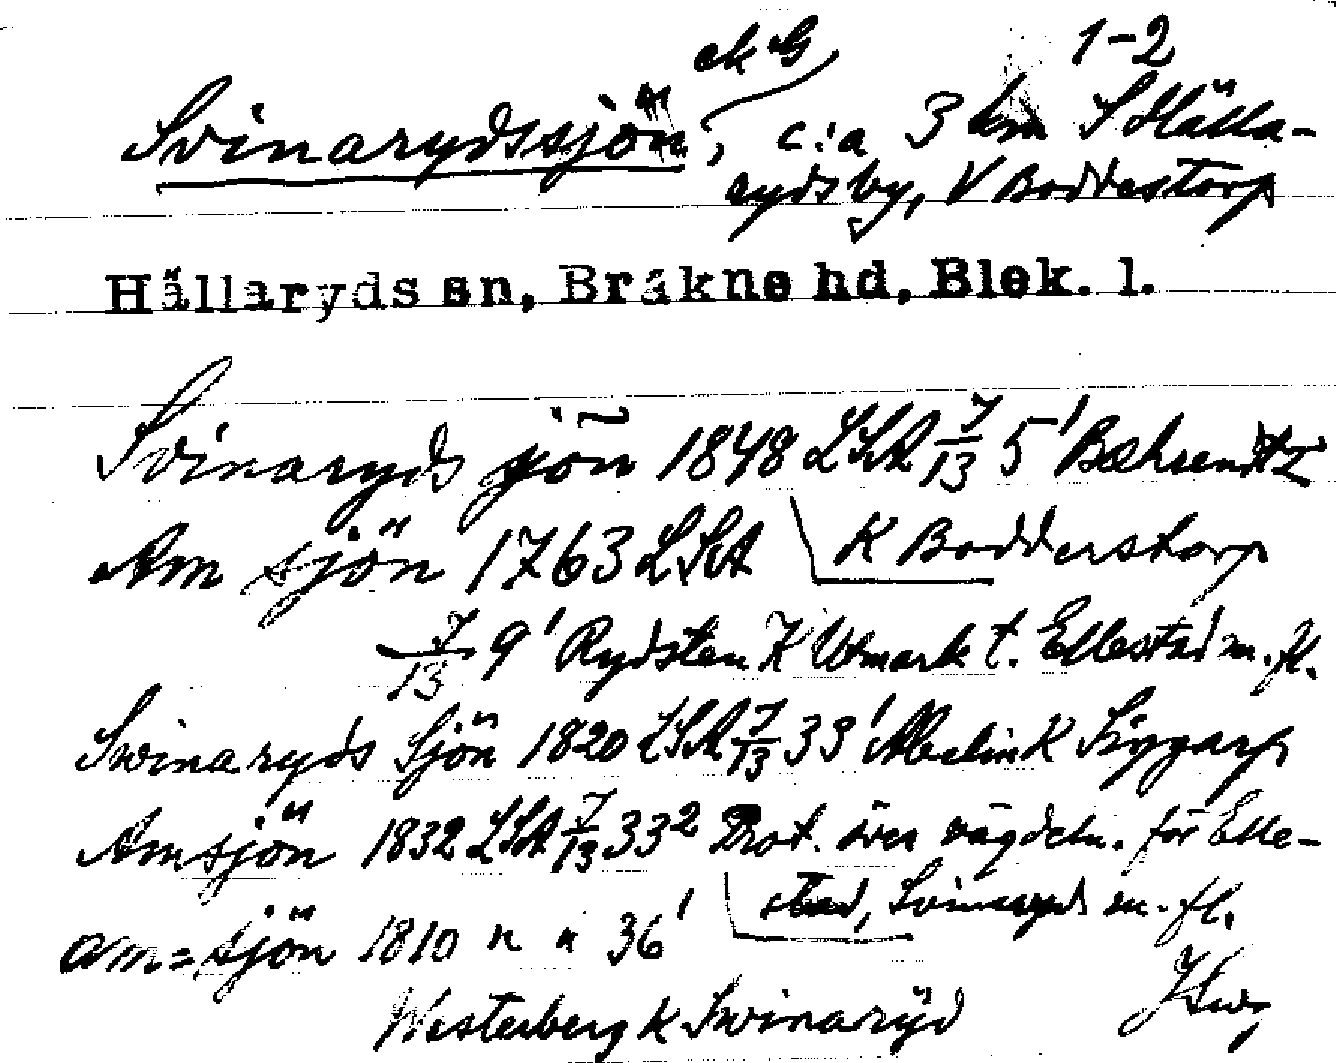 ek G 1-2
Svinarydssjön, c:a 3 km S Hälla-
rydsby, V Boddestorp
Hällaryds sn, Bräkne hd, Blek. l.
Svinaryds sjön 1848 LSA 7/13 5¹ Bæhrendtz
Am sjön 1763 LSA K Boddestorp
7/13 9¹ Rydsten K Utmark t. Ellestad m.fl.
Swinaryds Sjön 1820 LSA 7/13 33¹ Abelin K
Amsjön 1832 LSA 7/13 33² Prot. över vägdeln. för Elle-
stad, Svinaryd m.fl.
am=sjön 1810 " " 36¹
Westerberg K Swinarÿd